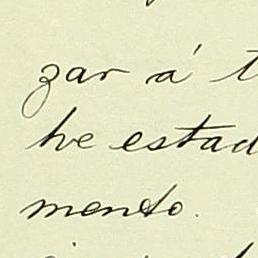 zar á t
he estad
mento.